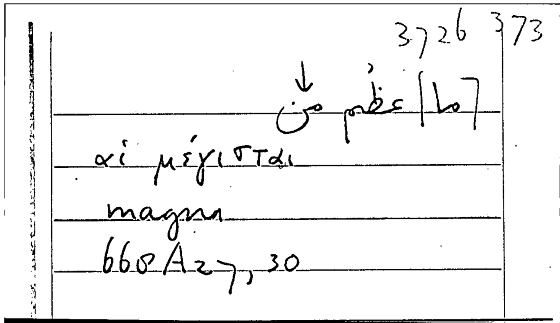 3726 373
[ما] عظم من
αἱ μέγισται
magna
668A27, 30